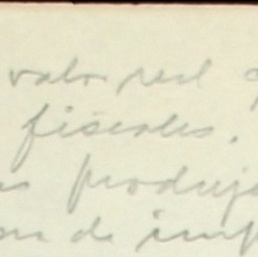 valor real
fiscales.
produj
de imp